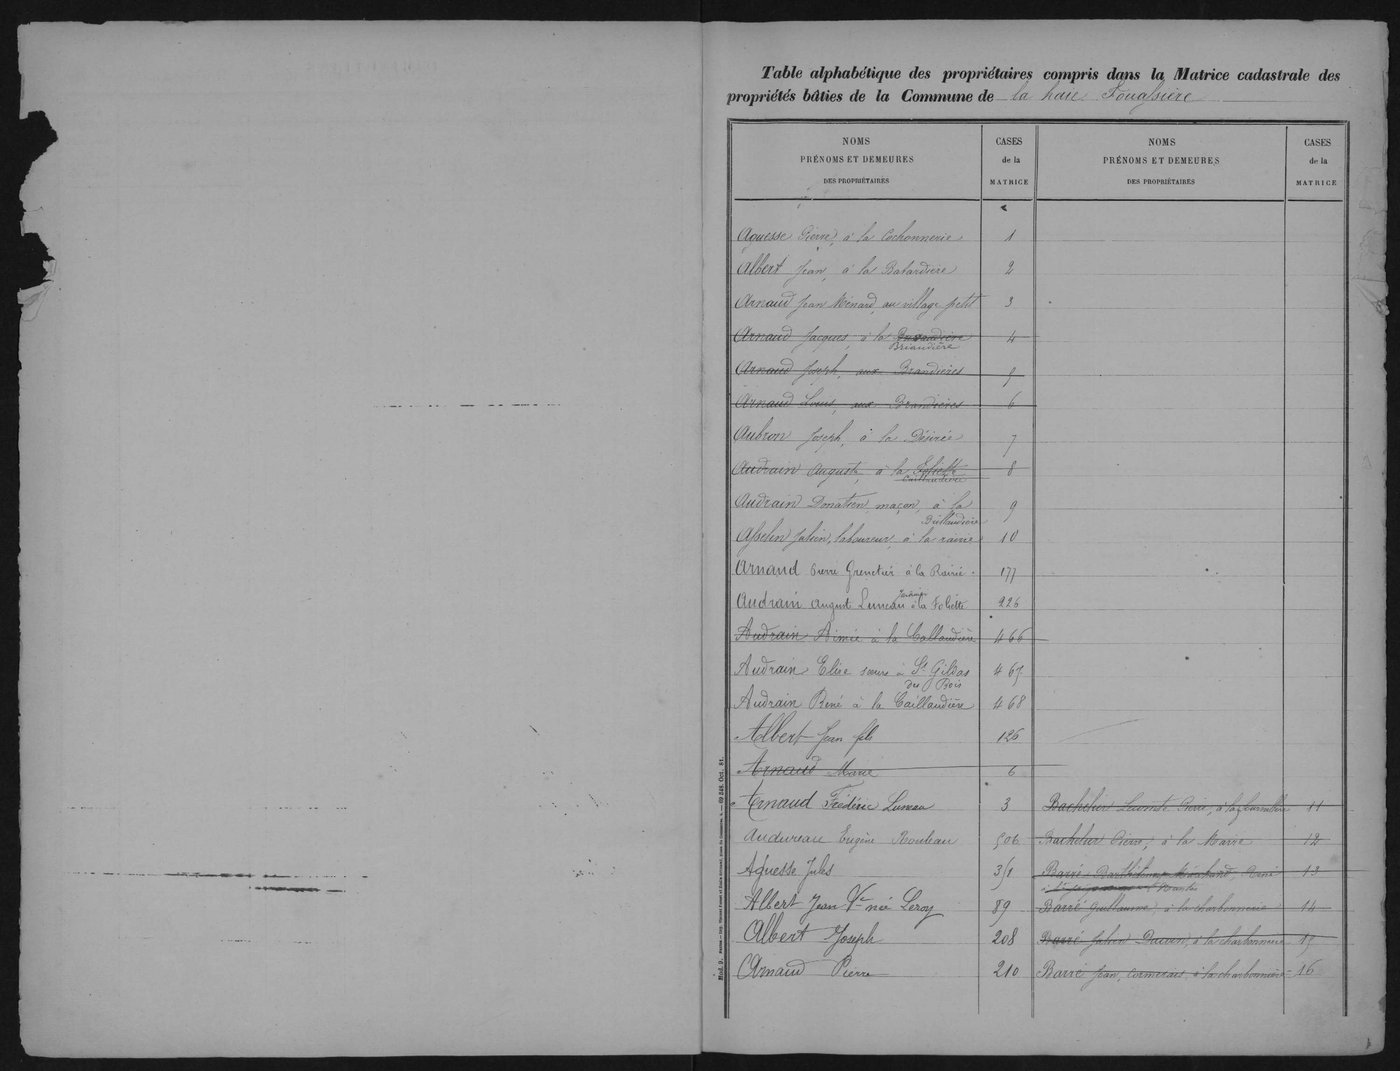 Table alphabétique des propriétaires compris dans la Matrice cadastrale des
propriétés bâties de la Commune de la haie Fouassière
NOMS
PRÉNOMS ET DEMEURES
DES PROPRIÉTAIRES
CASES
de la
MATRICE
NOMS
PRÉNOMS ET DEMEURES
DES PROPRIÉTAIRES
CASES
de la
MATRICE
Aguesse Pierre, à la Cochonnerie 1
Albert Jean, à la Batardière 2
Arnaud Jean Ménard, au village petit 3
Arnaud Jacques, à la Briandière 4
Arnaud Joseph, aux Brandières 5
Arnaud Louis, aux Brandières 6
Aubron Joseph, à la Désirée 7
Audrain Auguste, à la Caillaudière 8
Audrain Donatien, maçon, à la
9
Asselin Julien, laboureur, à la rairie 10
Arnaud Pierre à la Rairie 177
Audrain August Luneau à la Foliette 226
Audrain Aimée à la Caillaudière 466
Audrain Elise soeur à St Gildas
des Bois 467
Audrain René à la Caillaudière 468
Albert Jean fils 126
Arnaud Marie 6
Arnaud Frédéric Luneau 3
Audureau Eugène Rouleau 506
Aguesse Jules 351
Albert Jean Ve née Leroy 89
Albert Joseph 208
Arnaud Pierre 210
Bachelier Pierre, à la 11
Bachelier Pierre, à la Marre 12
Barré René 13
à Nantes
Barré Guillaume, à la charbonnerie 14
Barré Julien à la charbonnière 15
Barré Jean, Cormerais, à la charbonnière 16
Mod. D.